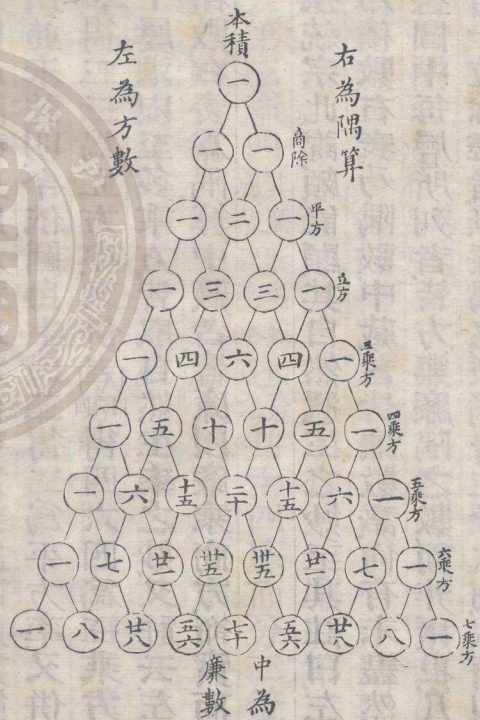 本積
右為隅算
左為方數
一
一 一 商除
一 二 一 平方
一 三 三 一 立方
一 四 六 四 一 三乘方
一 五 十 十 五 一 四乘方
一 六 十五 二十 十五 六 一 五乘方
一 七 廿一 卅五 卅五 廿一 七 一 六乘方
一 八 廿八 五六 七十 五六 廿八 八 一 七乘方
中為
廉數